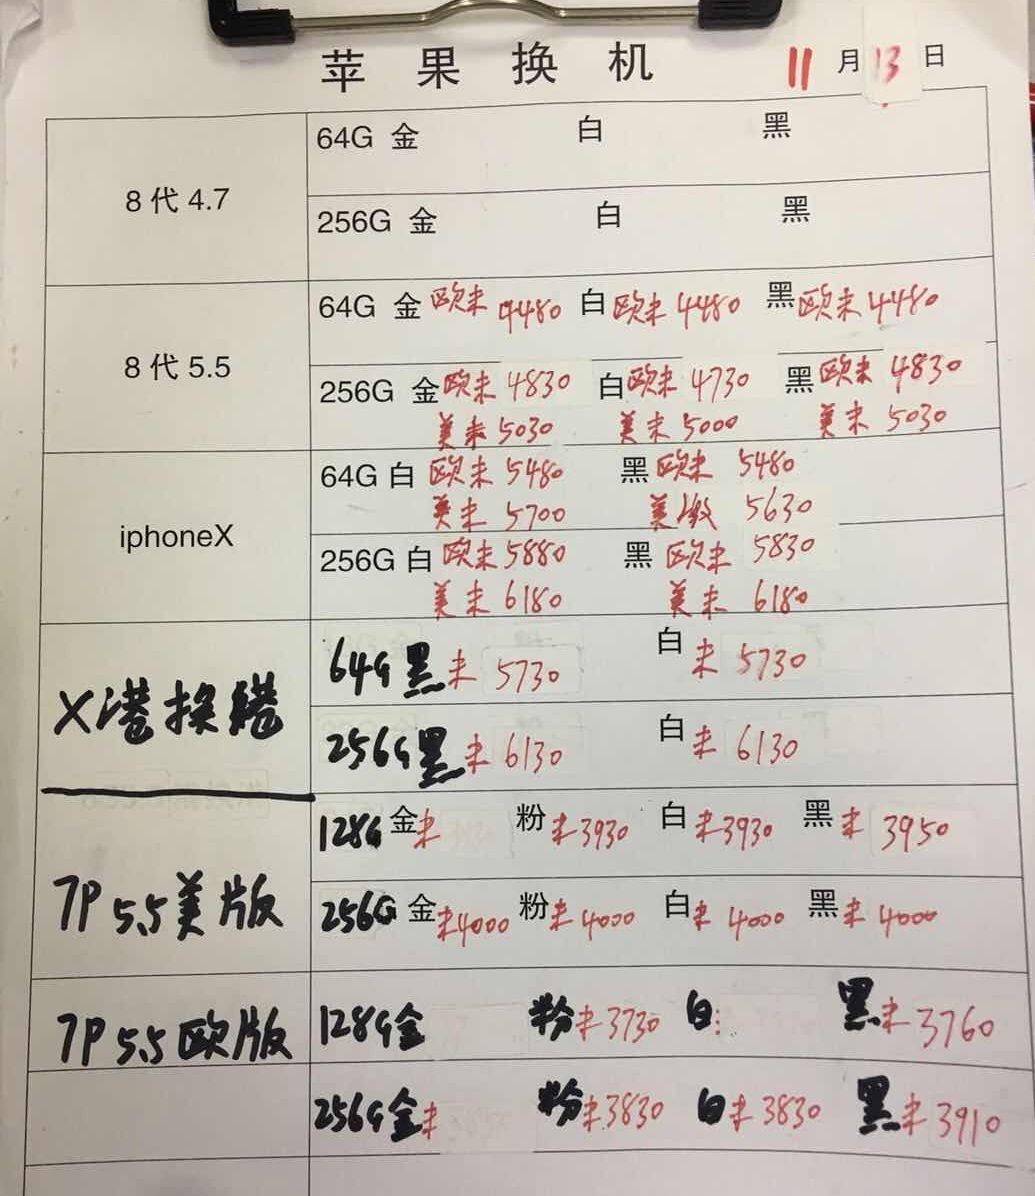 苹果换机 11月13日
8代4.7
64G 金 白 黑
256G 金 白 黑
8代5.5
64G 金 欧未 4480 白 欧未 4480 黑 欧未 4480
256G 金 欧未 4830 白 欧未 4730 黑 欧未 4830
美未 5030 美未 5000 美未 5030
iphoneX
64G 白 欧未 5480 黑 欧未 5480
美未 5700 美激 5630
256G 白 欧未 5880 黑 欧未 5830
美未 6180 美未 6180
X港换港
64G 黑 未 5730 白 未 5730
256G 黑 未 6130 白 未 6130
7P 5.5美版
128G 金 未 粉 未 3930 白 未 3930 黑 未 3950
256G 金 未 4000 粉 未 4000 白 未 4000 黑 未 4000
7P 5.5欧版
128G 金 粉 未 3730 白: 黑 未 3760
256G 金 未 粉 未 3830 白 未 3830 黑 未 3910